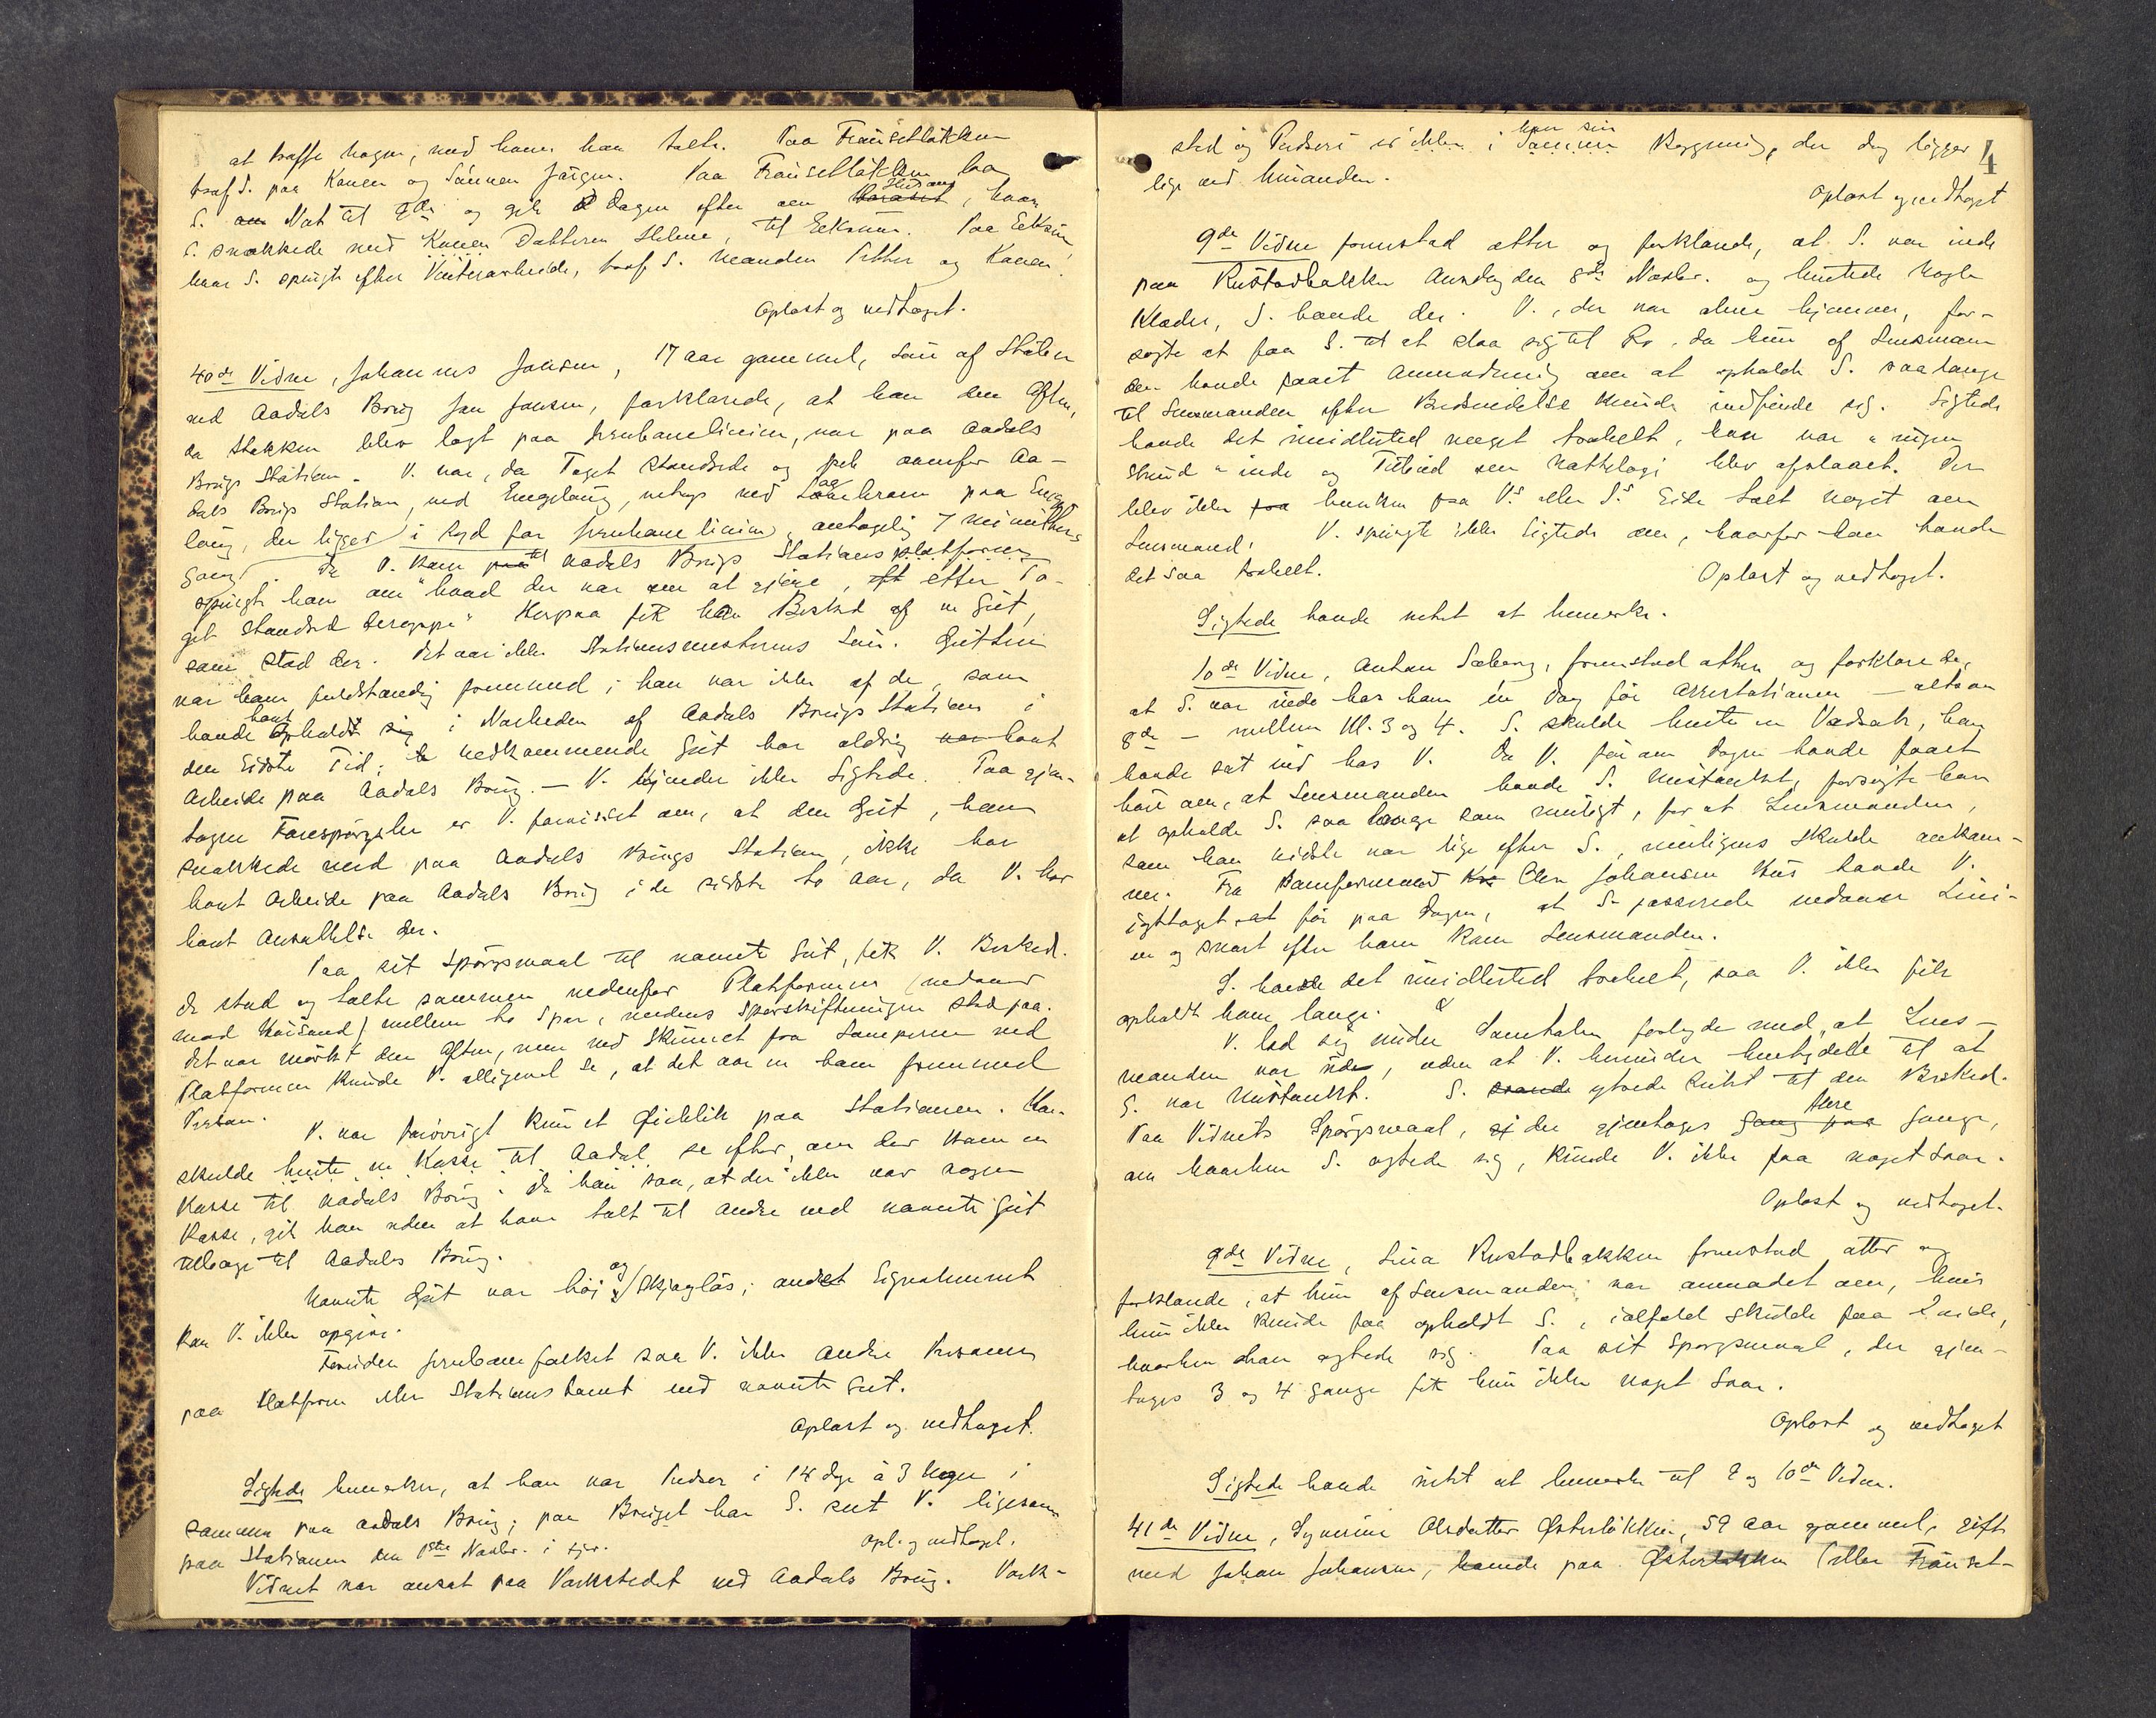 at træffe nogen, med hvem han talte. Paa Fransetløkken
traf S. paa Konen og Sønnen Jørgen. Paa Fransetløkken laa
S. om Nat til 9de og gik Dagen efter om Stedsom, hvor
S. snakkede med Konen Datteren Helene, til Ecksund. Paa Ecksund
hvor S. spurgte efter Vinterarbeide, traf S. Manden Petter og Konen.
Oplæst og vedtaget.
40de Vidne, Johannes Jonsen, 17 aar gammel, Søn af
ved Aadals Brug Jon Jonsen, forklarede, at han den Aften,
da Stokken blev lagt paa Jernbanelinien, var paa Aadals
Brugs Station. V. var, da Toget standsede og peb ovenfor Aa-
dals Brugs Station, ved Engelaug, netop ved paa Enge-
laug, der ligger i Syd for Jernbanelinien, antagelig 7 Minutters
Gang. Da V. kom til Aadals Brugs Stations platform
spurgte han om "hvad der var om at gjøre, efter To-
get standsed deroppe" Herpaa fik han Besked af en Gut,
som stod der. Det var ikke Stationsmesterens Søn. Gutten
var ham fuldstændig fremmed; han var ikke af de, som
havde havt Ophold i Nærheden af Aadals Brugs Station i
den sidste Tid; vedkommende Gut har aldrig havt
Arbeide paa Aadals Brug. — V. kjender ikke Sigtede. Paa gjen-
tagne Forespørgsler er V. forvisset om, at den Gut, han
snakkede med paa Aadals Brugs Station, ikke har
havt Arbeide paa Aadals Brug i de sidste to Aar, da V. har
havt Ansættelse der.
Paa sit Spørgsmaal til nævnte Gut, fik V. Besked.
De stod og talte sammen nedenfor Platformen (nedover
mod ) mellem to Spor, medens Sporskiftningen stod paa.
Det var mørkt den Aften, men ved Skinnet fra Lamperne ved
Platformen kunde V. alligevel se, at det var en ham fremmed
Person.
V. var forøvrigt kun et Øieblik paa Stationen. Han
skulde hente en Kasse til Aadal se efter, om der kom en
Kasse til Aadals Brug; da han saa, at der ikke var nogen
Kasse, gik han uden at have talt til andre end nævnte Gut
tilbage til Aadals Brug.
Nævnte Gut var høi og skjægløs; andet Signalement
kan V. ikke opgive.
Foruden Jernbanefolket saa V. ikke andre Personer
paa Platform eller Stationstomt end nævnte Gut.
Oplæst og vedtaget.
Sigtede bemærker, at han var Pudser i 14 dge à 3 Uger i
sammen paa Aadals Brug; paa Bruget har S. seet V. ligesom
paa Stationen den 1ste Novbr. i fjor.
Opl. og vedtaget.
Vidnet var ansat paa Værkstedet ved Aadals Brug. Værk-
4
sted og Pudseri er ikke i samme Bygning, der dog ligger
lige ved hinanden.
Oplæst og vedtaget
9de Vidne fremstod atter og forklarede, at S. var inde
paa Rustadbakken Onsdag den 8de Novbr. og hentede nogle
Klæder, S. havde der. V., der var alene hjemme, for-
søgte at faa S. til at slaa sig til Ro, da hun af Lensman-
den havde faaet Anmodning om at opholde S. saalænge
til Lensmanden efter Budsendelse kunde indfinde sig. Sigtede
havde det imidlertid meget travelt, han var "nogen
Stund" inde og Tilbud om Nattelogi blev afslaaet. Der
blev ikke hverken fra V's eller S's Side talt noget om
Lensmand. V. spurgte ikke Sigtede om, hvorfor han havde
det saa travelt.
Oplæst og vedtaget.
Sigtede havde intet at bemerke.
10de Vidne, Anton Søberg, fremstod atter og forklarede,
at S. var inde hos ham en Dag før Arrestationen — altsaa
8de — mellem Kl. 3 og 4. S. skulde hente en Vadsæk, han
havde sat ind hos V. Da V. før om Dagen havde faaet
høre om, at Lensmanden havde S. mistænkt, forsøgte han
at opholde S. saa længe som muligt, for at Lensmanden,
som han vidste var lige efter S., muligens skulde ankom-
me. Fra Ole Johansen havde V.
iagttaget før paa Dagen, at S. passerede nedover Lini-
en og snart efter ham kom Lensmanden.
S. havde det imidlertid travelt, saa V. ikke fik
opholdt ham længe.
V. lod sig under Samtalen forlyde med, at Lens-
manden var ude, uden at V. herunder hentydede til at
S. var mistænkt. S. ytrede intet til den Besked.
Paa Vidnets Spørgsmaal, der gjentoges flere Gange,
om hvorhen S. agtede sig, kunde V. ikke faa noget Svar.
Oplæst og vedtaget.
9de Vidne, Lina Rustadbakken fremstod atter og
forklarede, at hun af Lensmanden var anmodet om, hvis
hun ikke kunde faa opholdt S., ialfald skulde faa vide,
hvorhen han agtede sig. Paa sit Spørgsmaal, der gjen-
toges 3 og 4 Gange fik hun ikke noget Svar.
Oplæst og vedtaget
Sigtede havde intet at bemerke til 9 og 10de Vidne.
41de Vidne, Olsdatter Østerløkken, 59 Aar gammel, gift
med Johan Johansen, boende paa Østerløkken (eller Franset-